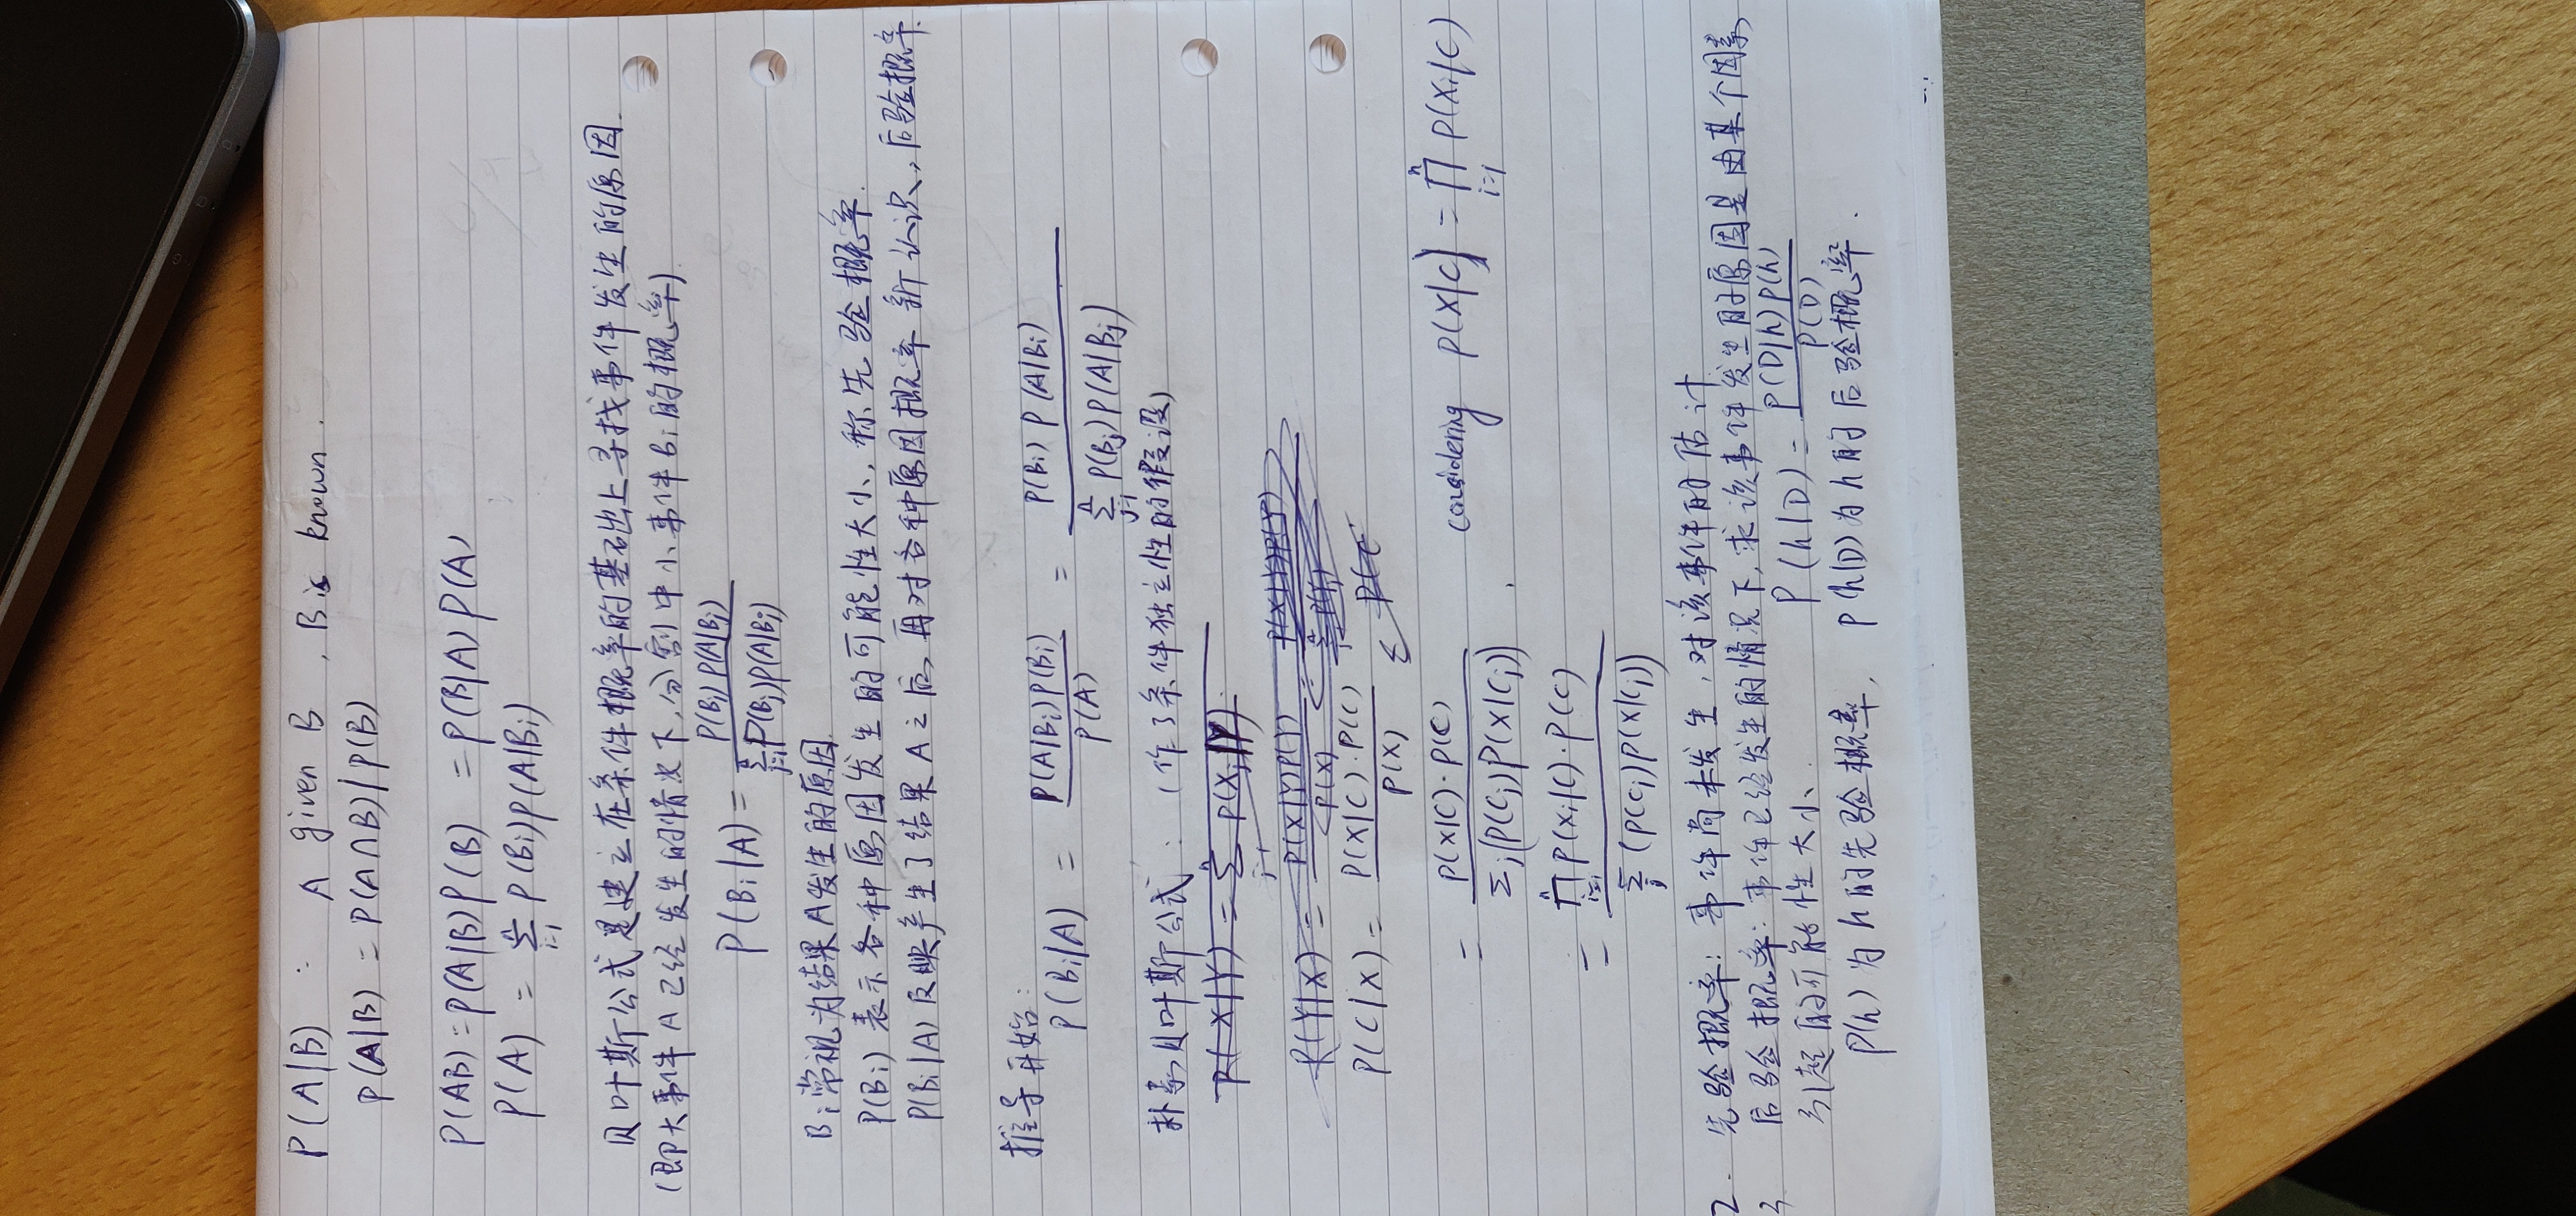 P(A|B) : A given B , B is known .
P(A|B) = P(A∩B) | P(B)
P(AB) = P(A|B)P(B) = P(B|A)P(A)
P(A) = Σ i=1 n P(Bi)P(A|Bi)
贝叶斯公式是建立在条件概率的基础上寻找事件发生的原因
(即大事件A已经发生的情况下,分割中小事件Bi的概率)
P(Bi|A) = P(Bi)P(A|Bi) / Σ j=1 n P(Bj)P(A|Bj)
Bi常视为结果A发生的原因
P(Bi)表示各种原因发生的可能性大小,称先验概率.
P(Bi|A)反映产生了结果A之后,再对各种原因概率新认识,后验概率.
推导开始:
P(Bi|A) = P(A|Bi)P(Bi) / P(A) = P(Bi)P(A|Bi) / Σ j=1 n P(Bj)P(A|Bj)
朴素贝叶斯公式: (作了条件独立性的假设)
P(C|X) = P(X|C)·P(C) / P(X)
= P(X|C)·P(C) / Σj(P(Cj)P(X|Cj)) . considering P(X|C) = ∏ i=1 n P(Xi|C)
= ∏ i=1 n P(Xi|C)·P(C) / Σ j (P(Cj)P(X|Cj))
2. 先验概率: 事件尚未发生,对该事件的估计
后验概率: 事件已经发生的情况下,求该事件发生的原因是由某个因素
引起的可能性大小.
P(h|D) = P(D|h)P(h) / P(D)
P(h)为h的先验概率, P(h|D)为h的后验概率.